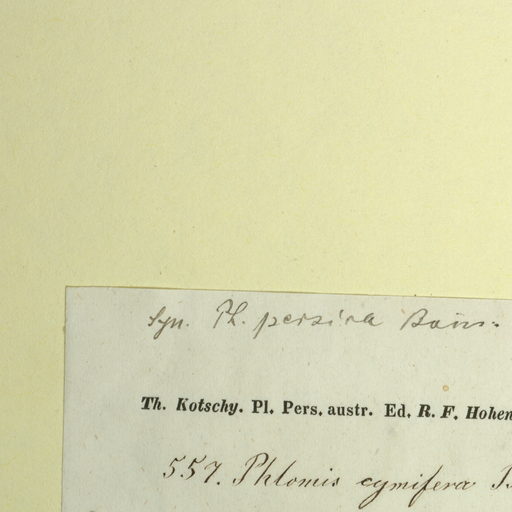 Syn. Ph. persica Boiss.
Th. Kotschy. Pl. Pers. austr. Ed. R. F. Hohen
557. Phlomis cymifera